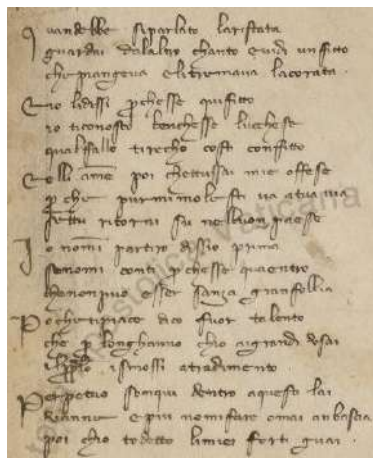 Quandebbe siparlato larstata
guardai dalaltro chanto euidi unfitto
che piangeua elitremaua lacorata.
Et io lidissi p chesse quifitto
io ticonosco benchesse lucchese
qualfallo tirecho costi confitto
Et elli ame poi chettussai mie offese
p che purmi molesti ua atua uia
settu ritorni su nelbuon paese
Io nomi partiro dissio prima
senomi conti p chesse quaentro
chenonpuo esser sanza granfollia
Po chetipiace dico fuor talento
che p longhanno chio aigrandi
ismossi atradimento.
Perpetuo sonqui dentro aquesto lai
e piu nomifare omai anbascia
poi chio todetto limiei forti guai.